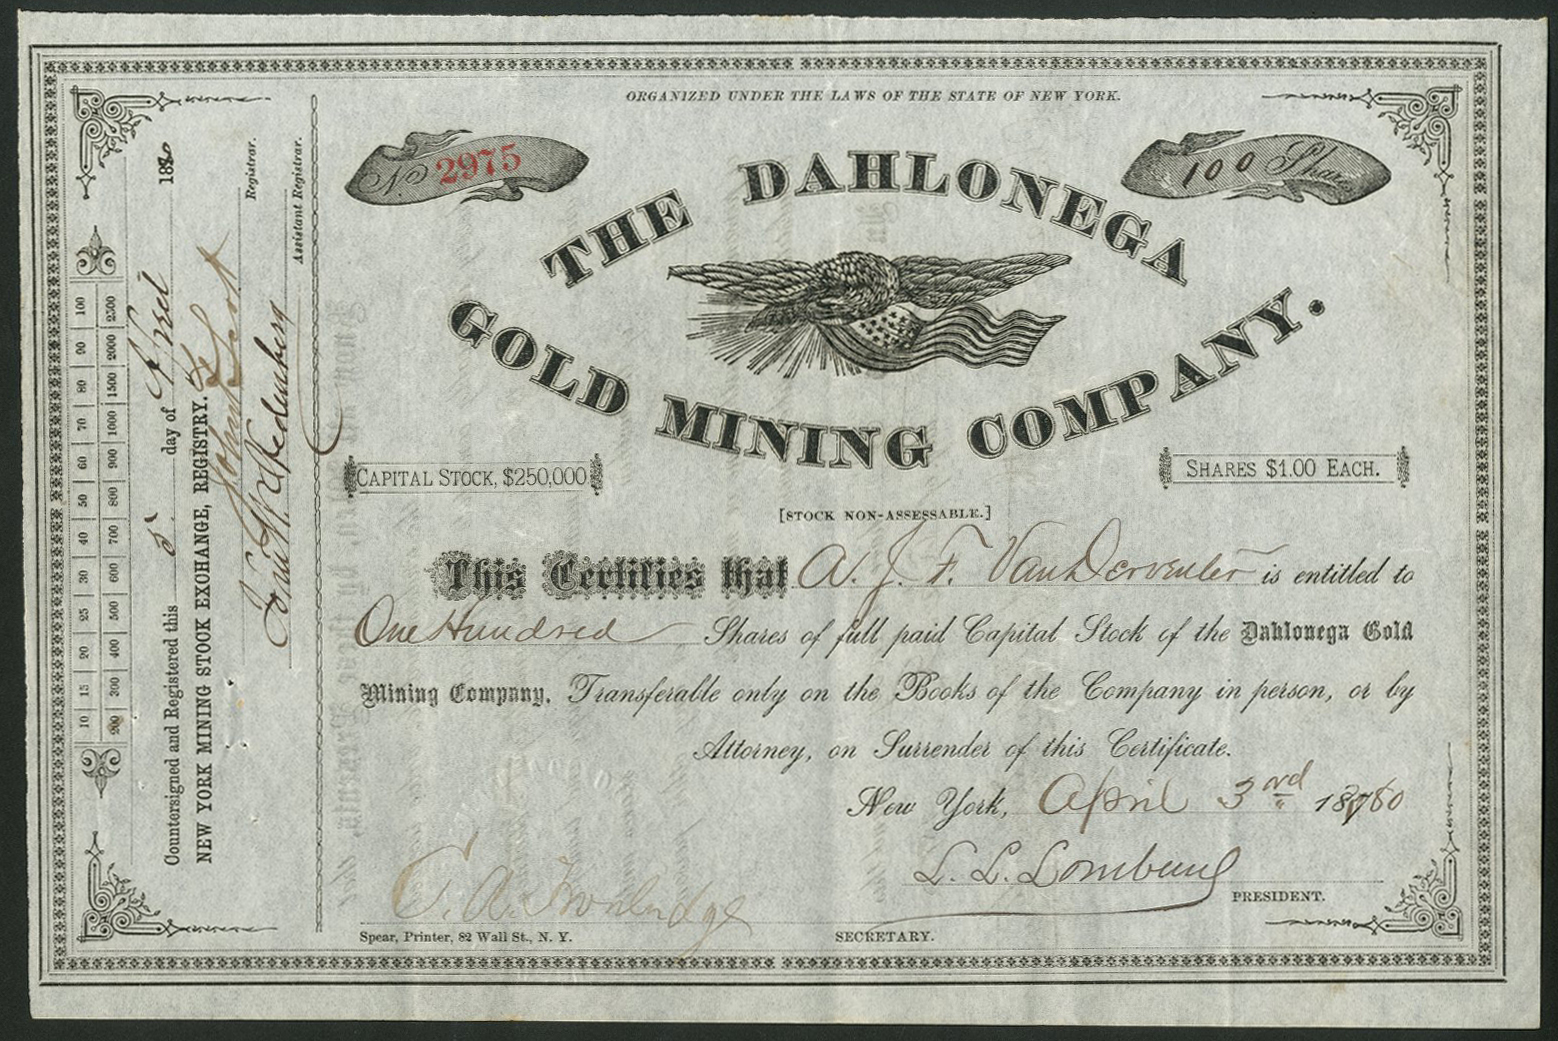 ORGANIZED UNDER THE LAWS OF THE STATE OF NEW YORK.
No. 2975
100 Shares
THE DAHLONEGA
GOLD MINING COMPANY.
CAPITAL STOCK, $250,000
SHARES $1.00 EACH.
[STOCK NON-ASSESSABLE.]
This Certifies that A. J. F. VanDerventer is entitled to
One Hundred Shares of full paid Capital Stock of the Dahlonega Gold
Mining Company, Transferable only on the Books of the Company in person, or by
Attorney, on Surrender of this Certificate.
New York, April 3rd 1880
PRESIDENT.
SECRETARY.
Spear, Printer, 82 Wall St., N. Y.
10 15 20 25 30 40 50 60 70 80 90 100
200 300 400 500 600 700 800 900 1000 1500 2000 2500
Countersigned and Registered this 5 day of April 1880
NEW YORK MINING STOCK EXCHANGE, REGISTRY.
Registrar.
Assistant Registrar.